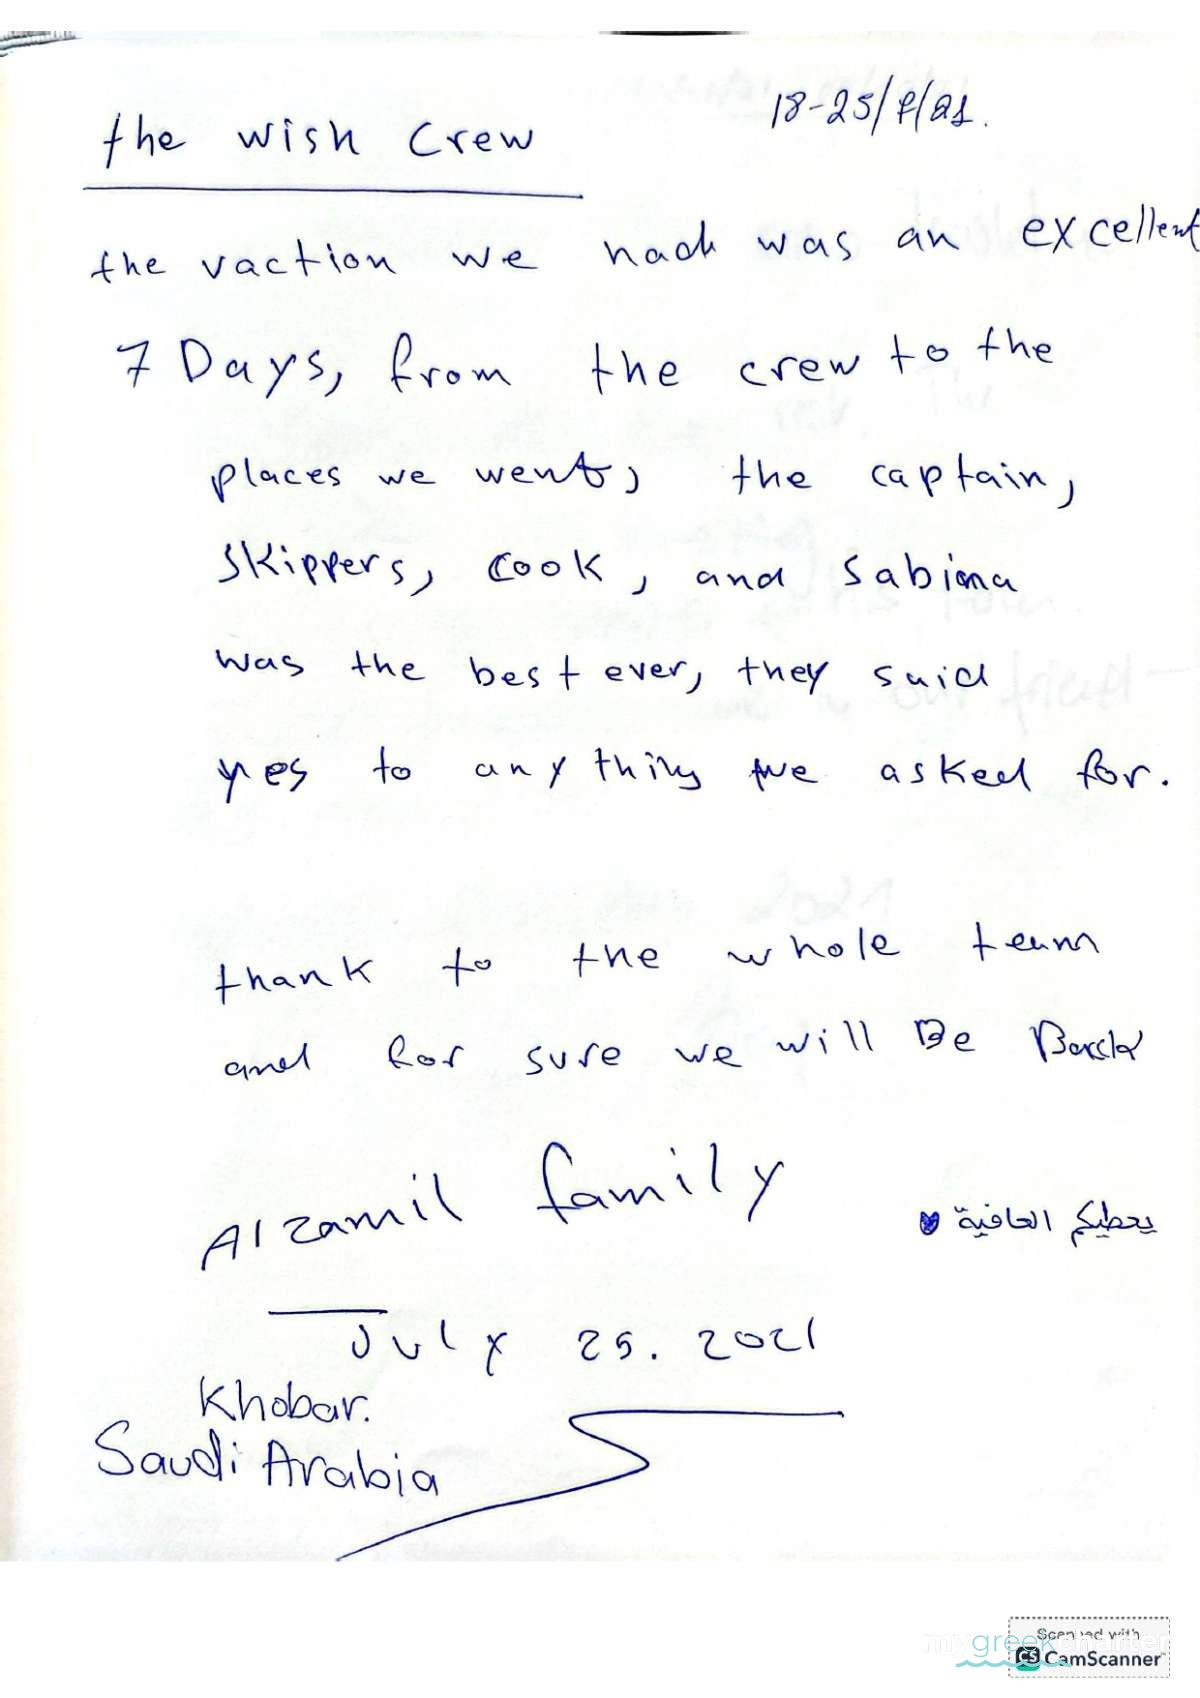 18-25/7/21.
the wish crew
the vaction we had was an excellent
7 Days, from the crew to the
places we went, the captain,
skippers, cook, and Sabina
was the best ever, they said
yes to anything we asked for.
thank to the whole team
and for sure we will Be Back
Alzamil family
يعطيكم العافية
July 25. 2021
Khobar.
Saudi Arabia
Scanned with
mygreekcharter
CS CamScanner